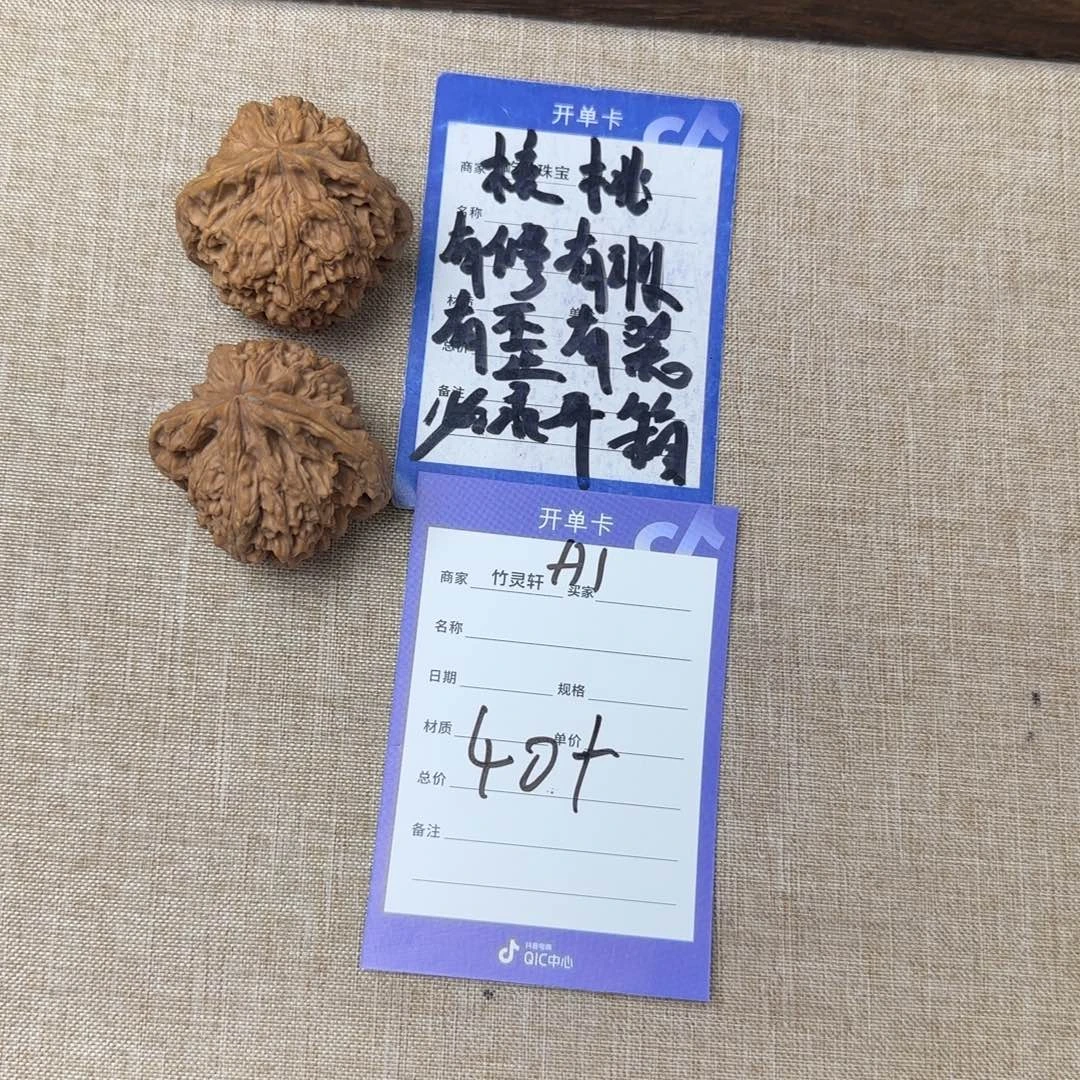 开单卡
商家 珠宝
核桃
名称
有修有瑕
材质 单
有歪有裂
总价
备注
必录开箱
开单卡
A1
商家 竹灵轩 买家
名称
日期 规格
材质 单价
40+
总价
备注
抖音电商
QIC中心